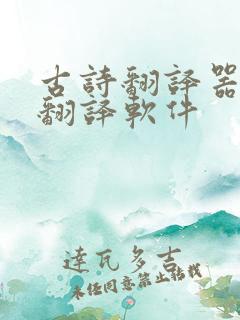 古詩翻譯器
翻譯軟件
達瓦多吉
未經同意禁止轉載